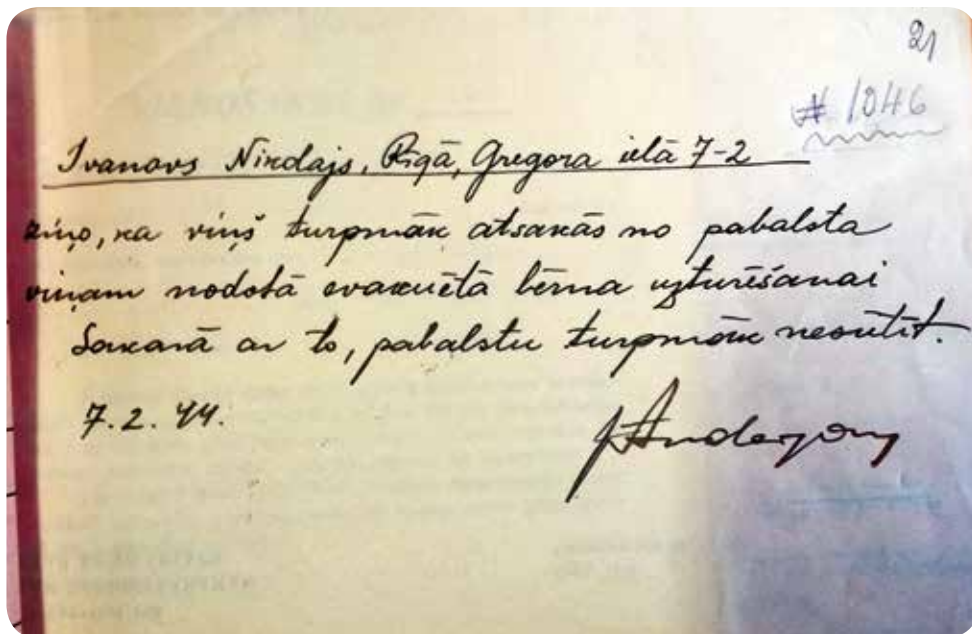 21
# 1046
Ivanovs Nikolajs, Rīgā, Gregora ielā 7-2
ziņo, ka viņš turpmāk atsakās no pabalsta
viņam nodotā evakuētā bērna uzturēšanai
Sakarā ar to, pabalstu turpmāk nesūtīt.
7.2.44.